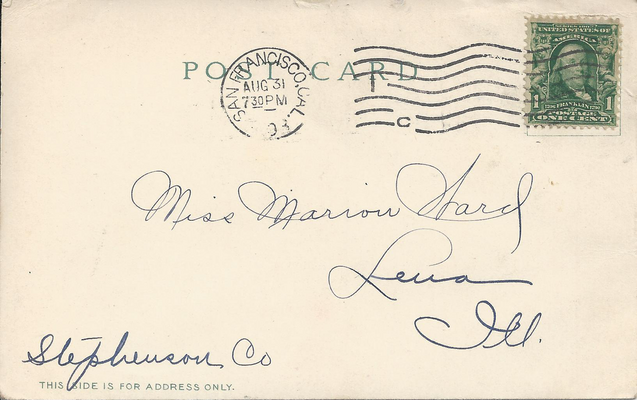 POST CARD
SAN FRANCISCO, CAL.
AUG 31
7 30 PM
03
C
SERIES 1902
UNITED STATES OF
AMERICA
FRANKLIN
1 POSTAGE 1
ONE CENT
Miss Marion Ward
Lena
Ill.
Stephenson Co
THIS SIDE IS FOR ADDRESS ONLY.